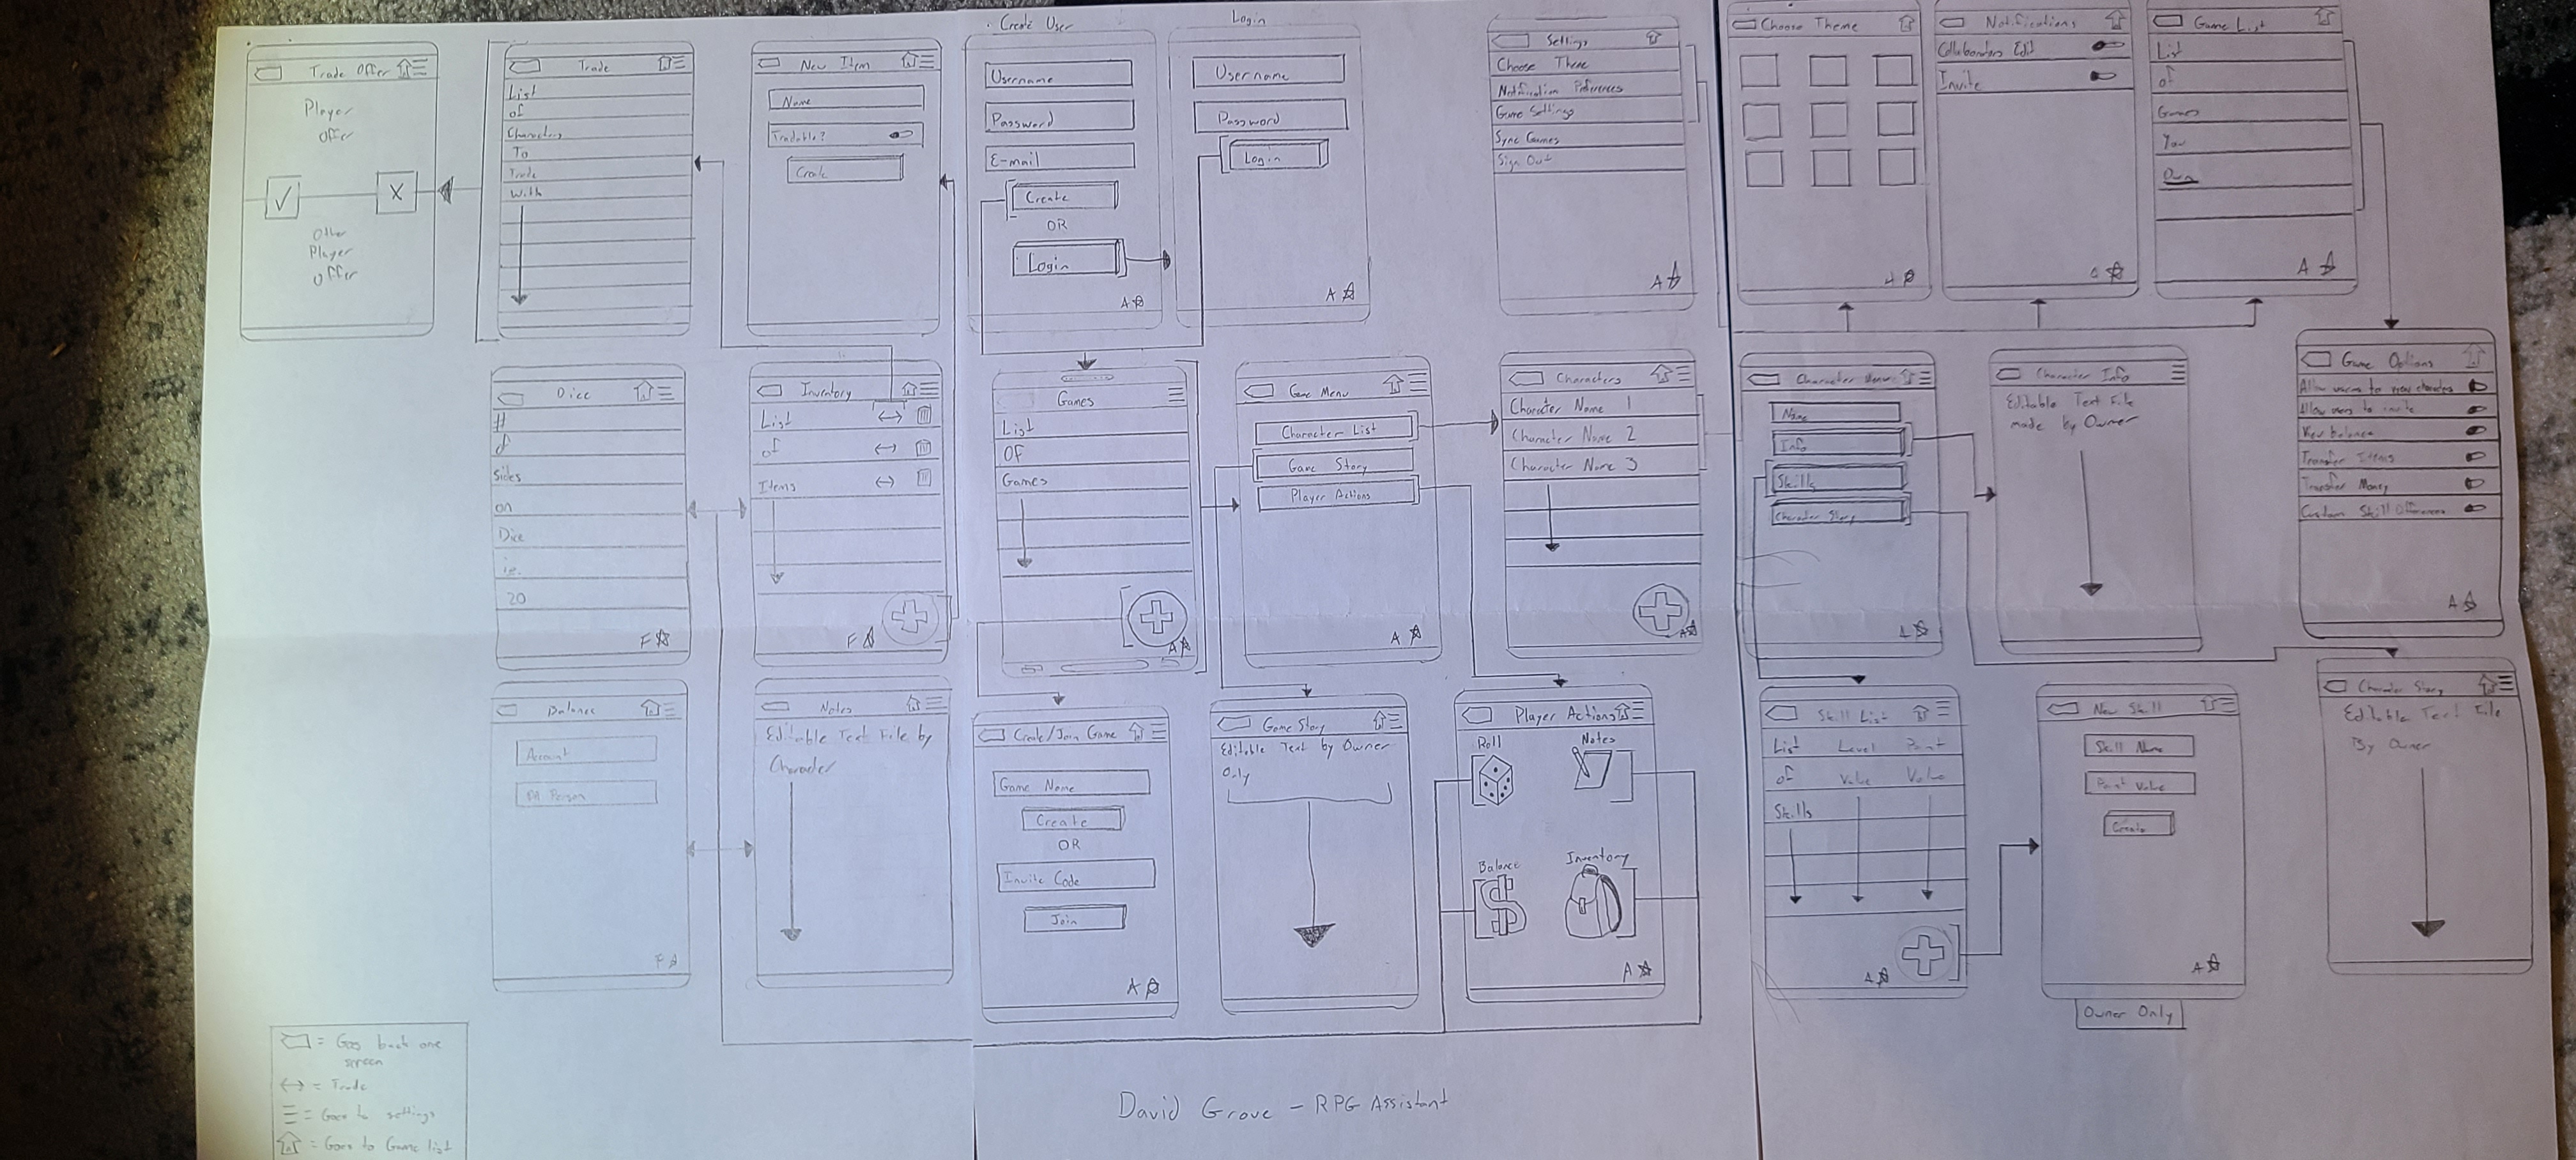 Trade Offer
Player
Offer
✓
X
Other
Player
Offer
Trade
List
of
Characters
To
Trade
With
New Item
Name
Tradable?
Create
Create User
Username
Password
E-mail
Create
OR
Login
A
Login
Username
Password
Login
A
Settings
Choose Theme
Notification Preferences
Game Settings
Sync Games
Sign Out
A
Choose Theme
A
Notifications
Collaborators Edit
Invite
A
Game List
List
of
Games
You
Own
A
Dice
#
of
Sides
on
Dice
i.e.
20
F
Inventory
List
of
Items
F
Games
List
OF
Games
A
Game Menu
Character List
Game Story
Player Actions
A
Characters
Character Name 1
Character Name 2
Character Name 3
A
Character Menu
Name
Info
Skills
Character Story
A
Character Info
Editable Text File
made by Owner
Game Options
Allow users to view characters
Allow users to invite
View balance
Transfer Items
Transfer Money
Custom Skill
A
Balance
Account
Person
F
Notes
Editable Text File by
Character
Create/Join Game
Game Name
Create
OR
Invite Code
Join
A
Game Story
Editable Text by Owner
Only
Player Actions
Roll
Notes
Balance
$
Inventory
A
Skill List
List Level Point
of Value Value
Skills
A
New Skill
Skill Name
Point Value
Create
A
Owner Only
Character Story
Editable Text File
By Owner
= Goes back one
screen
↔ = Trade
☰ = Goes to settings
= Goes to Game list
David Grove - RPG Assistant